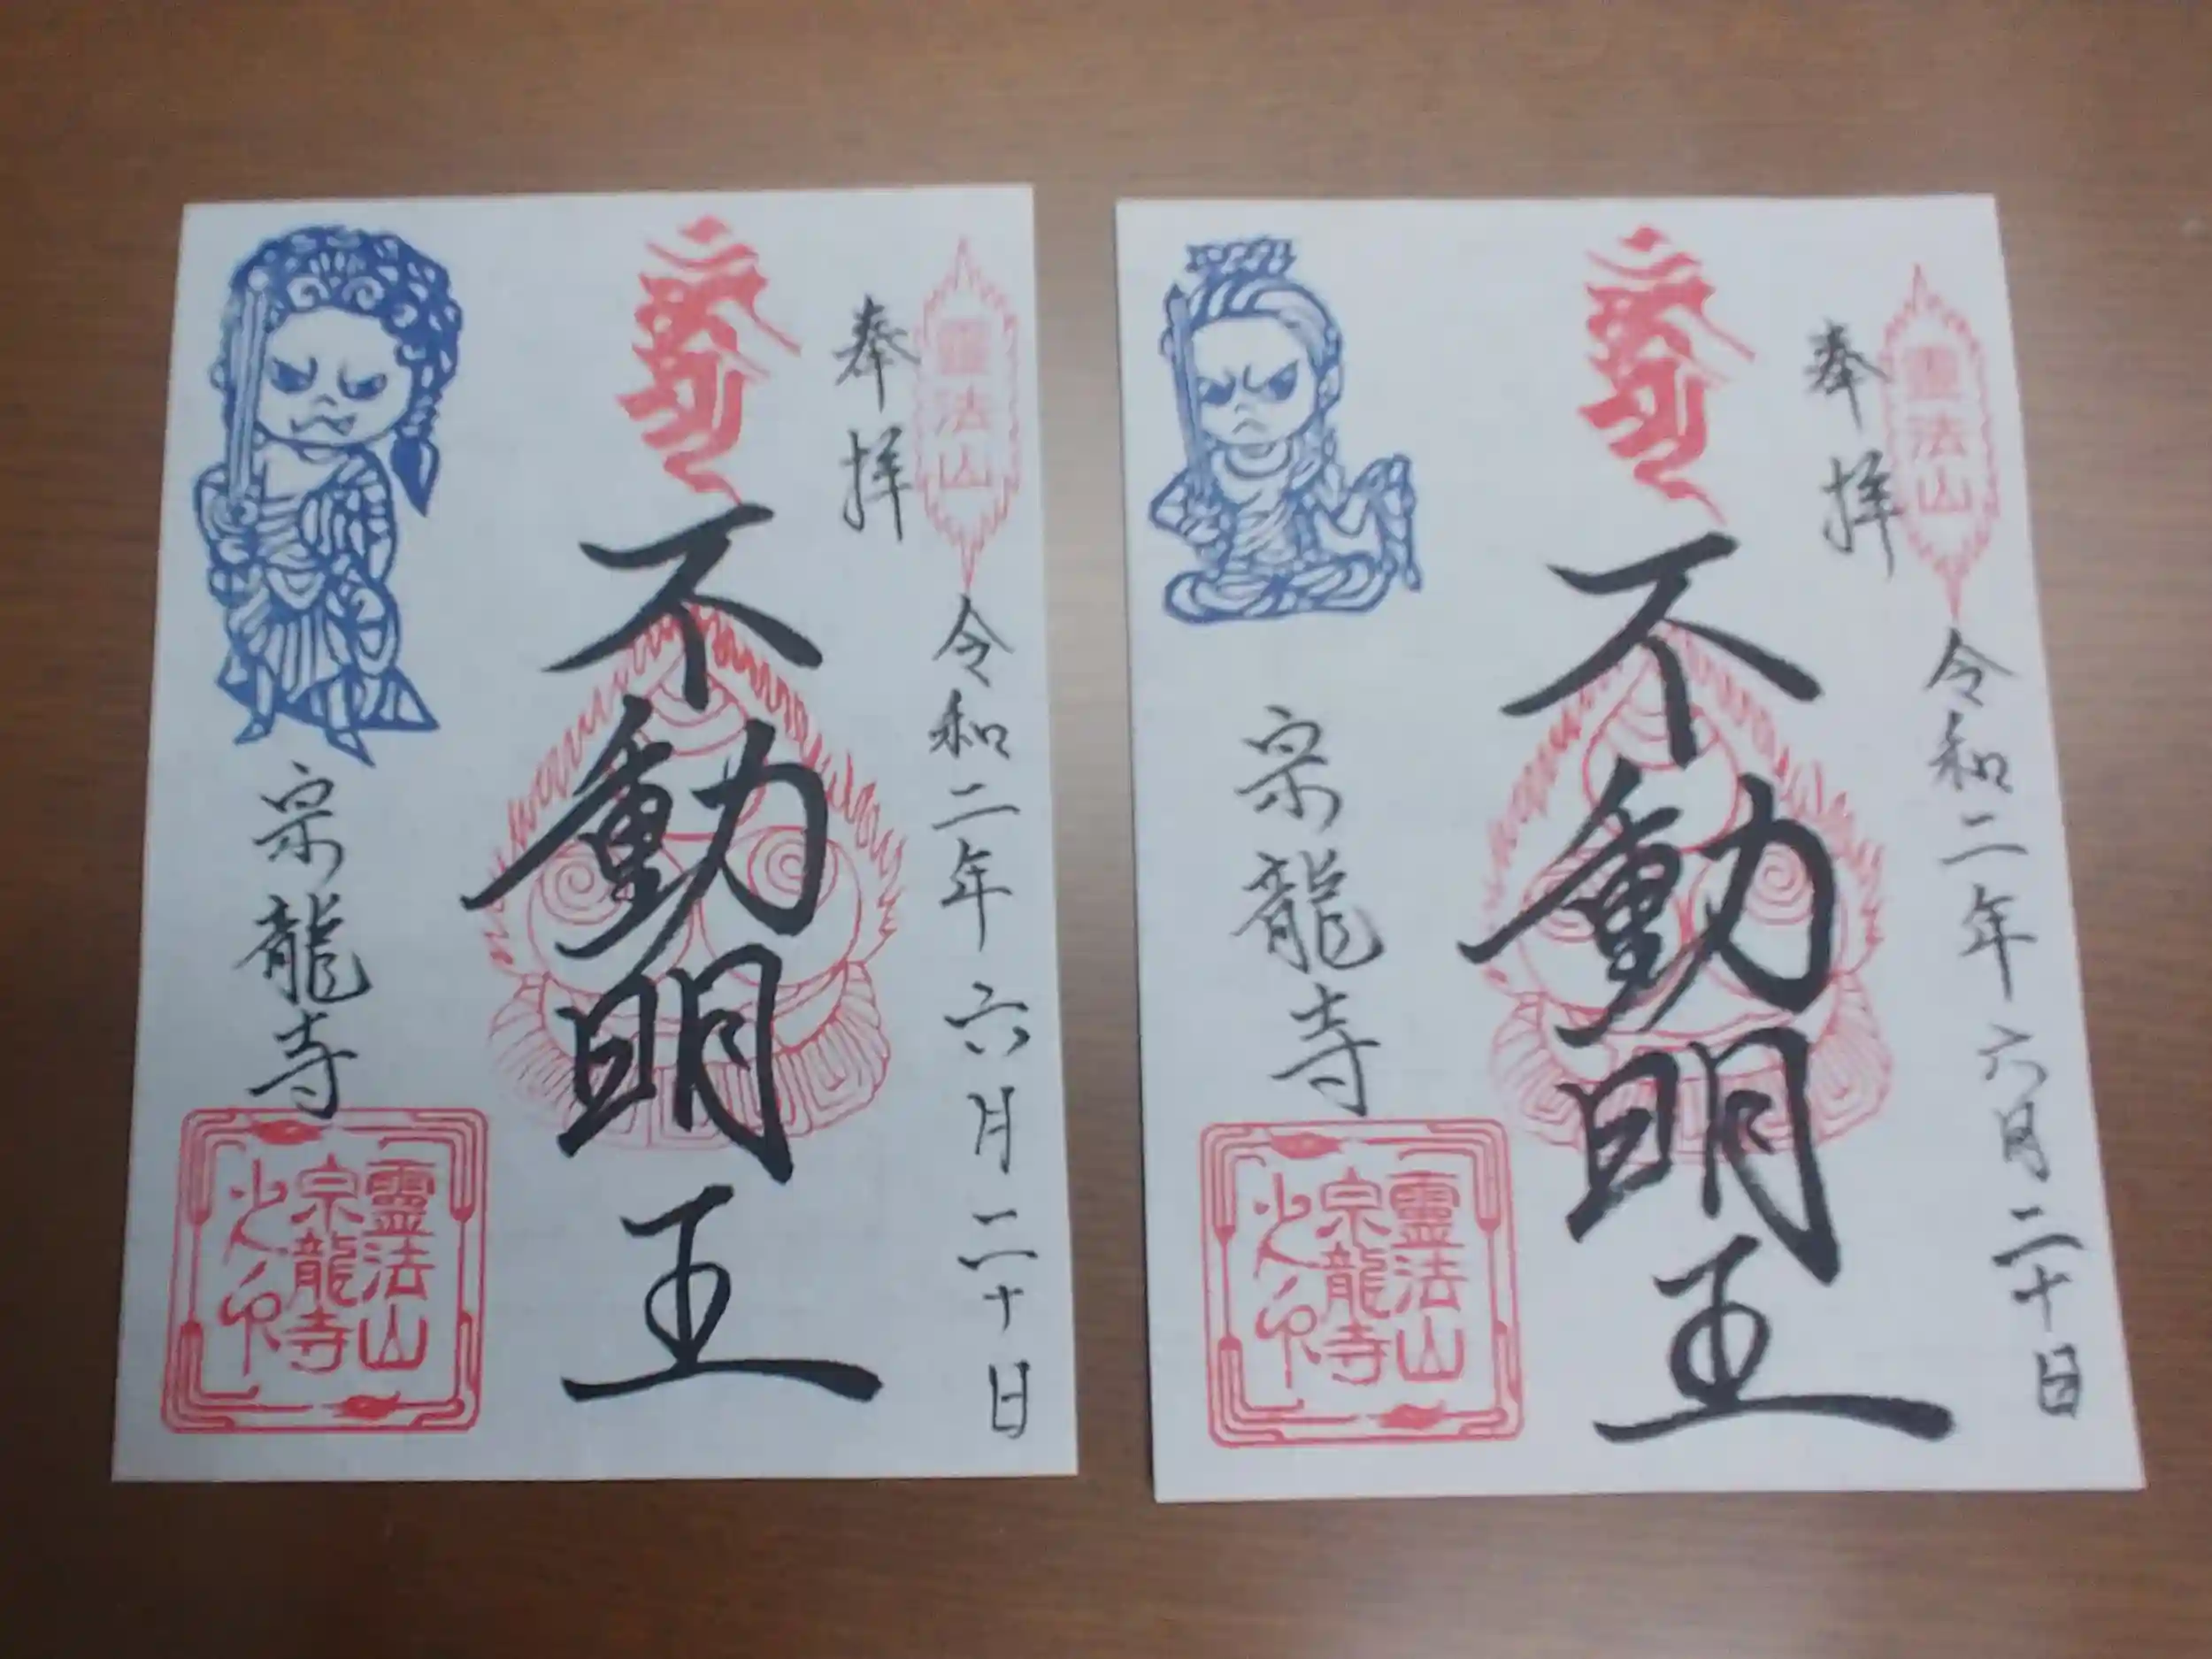 靈法山
奉拝
令和二年六月二十日
不動明王
宗龍寺
靈法山
宗龍寺
靈法山
奉拝
令和二年六月二十日
不動明王
宗龍寺
靈法山
宗龍寺